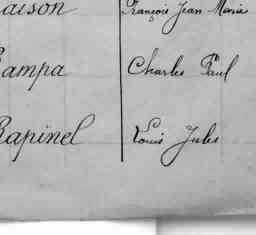 aison François Jean Marie
Campa Charles Paul
Rapinel Louis Jules